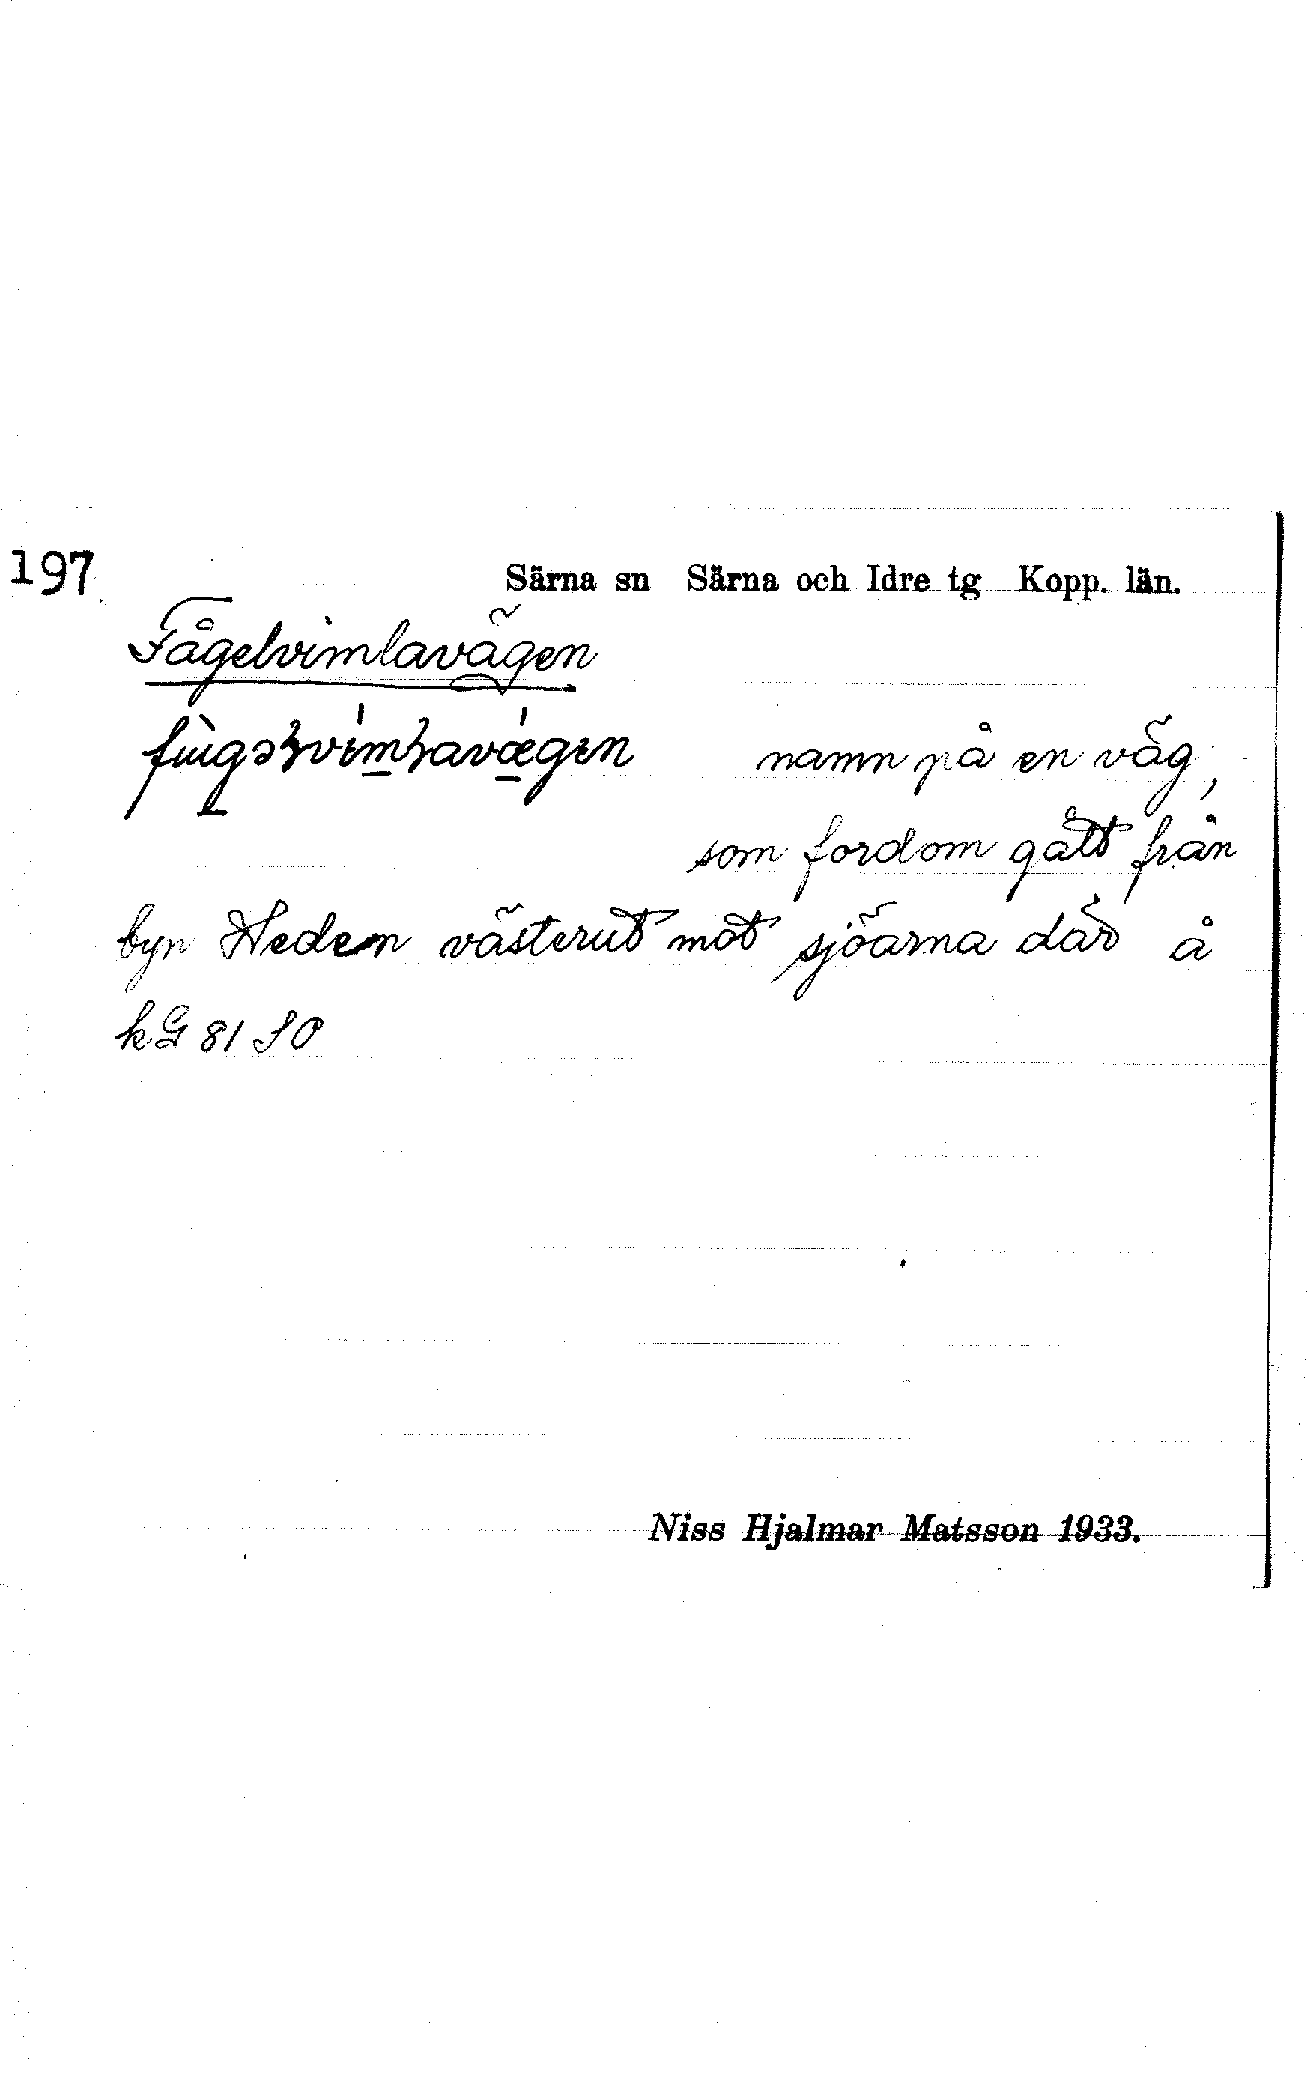 197
Särna sn Särna och Idre tg Kopp. län.
Fågelvimlavägen
namn på en väg,
som fordom gått från
byn Heden västerut mot sjöarna där å
kG 81 SO
Niss Hjalmar Matsson 1933.